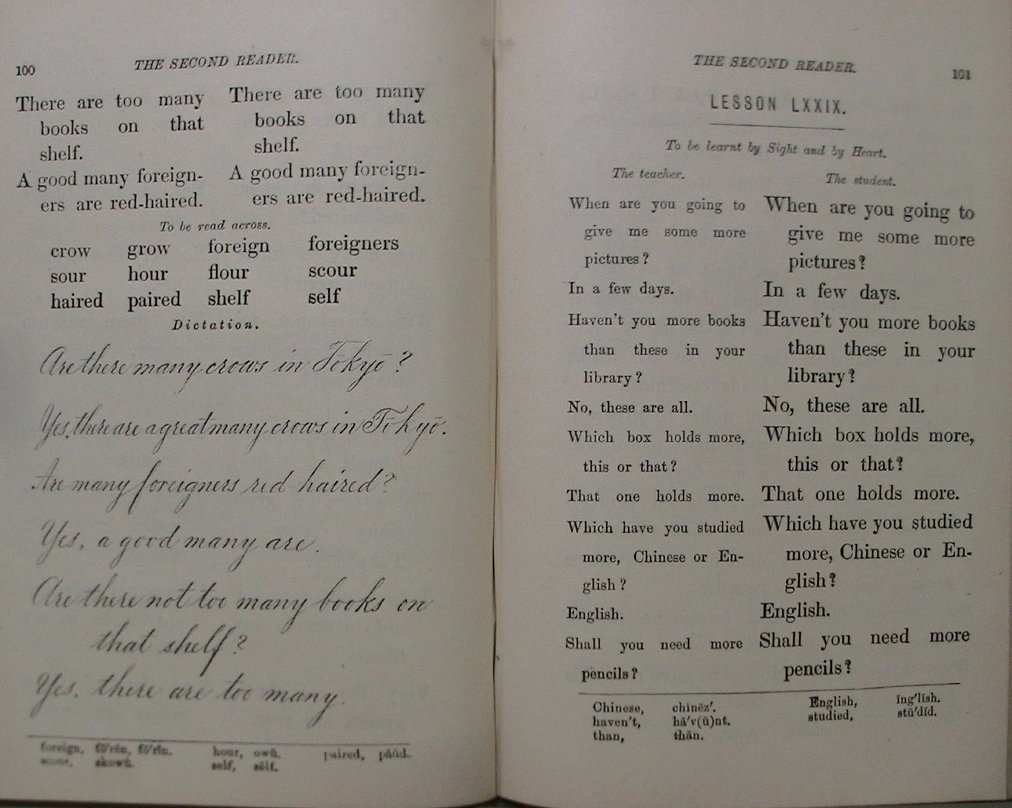 100 THE SECOND READER.
There are too many
books on that
shelf.
A good many foreign-
ers are red-haired.
There are too many
books on that
shelf.
A good many foreign-
ers are red-haired.
To be read across.
crow grow foreign foreigners
sour hour flour scour
haired paired shelf self
Dictation.
Are there many crows in Tōkyō?
Yes, there are a great many crows in Tōkyō.
Are many foreigners red haired?
Yes, a good many are.
Are there not too many books on
that shelf?
Yes, there are too many.
foreign, fŏ'rĕn, fŏ'rĭn. hour, owŭ. paired,
scour, skowŭ. self, sĕlf.
THE SECOND READER. 101
LESSON LXXIX.
To be learnt by Sight and by Heart.
The teacher.
When are you going to
give me some more
pictures?
In a few days.
Haven't you more books
than these in your
library?
No, these are all.
Which box holds more,
this or that?
That one holds more.
Which have you studied
more, Chinese or En-
glish?
English.
Shall you need more
pencils?
The student.
When are you going to
give me some more
pictures?
In a few days.
Haven't you more books
than these in your
library?
No, these are all.
Which box holds more,
this or that?
That one holds more.
Which have you studied
more, Chinese or En-
glish?
English.
Shall you need more
pencils?
Chinese, chīnēz'. English, ĭng'lĭsh.
haven't, hă'v(ŭ)nt. studied, stŭ'dĭd.
than, thăn.